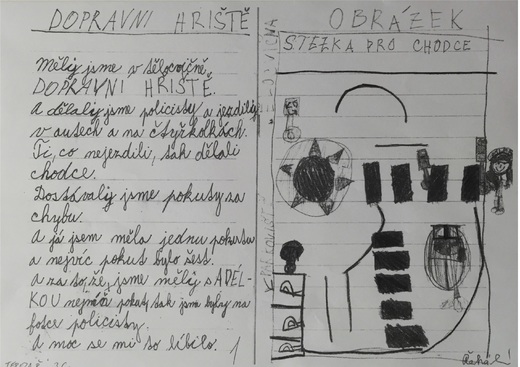 DOPRAVNI HŘIŠTĚ
Měly jsme v tělocvičně
DOPRAVNI HŘIŠTĚ.
A dělaly jsme policisty a jezdily
v autech a na čtyřkolkách.
Ti, co nejezdili, tak dělali
chodce.
Dostávaly jsme pokuty za
chybu.
A já jsem měla jednu pokutu
a nejvíc pokut bylo šest.
a za to, že, jsme měly s ADÉL-
KOU pokuty tak jsme byly na
fotce policisty.
A moc se mi to líbilo. 1
OBRÁZEK
STEZKA PRO CHODCE
P
P
P